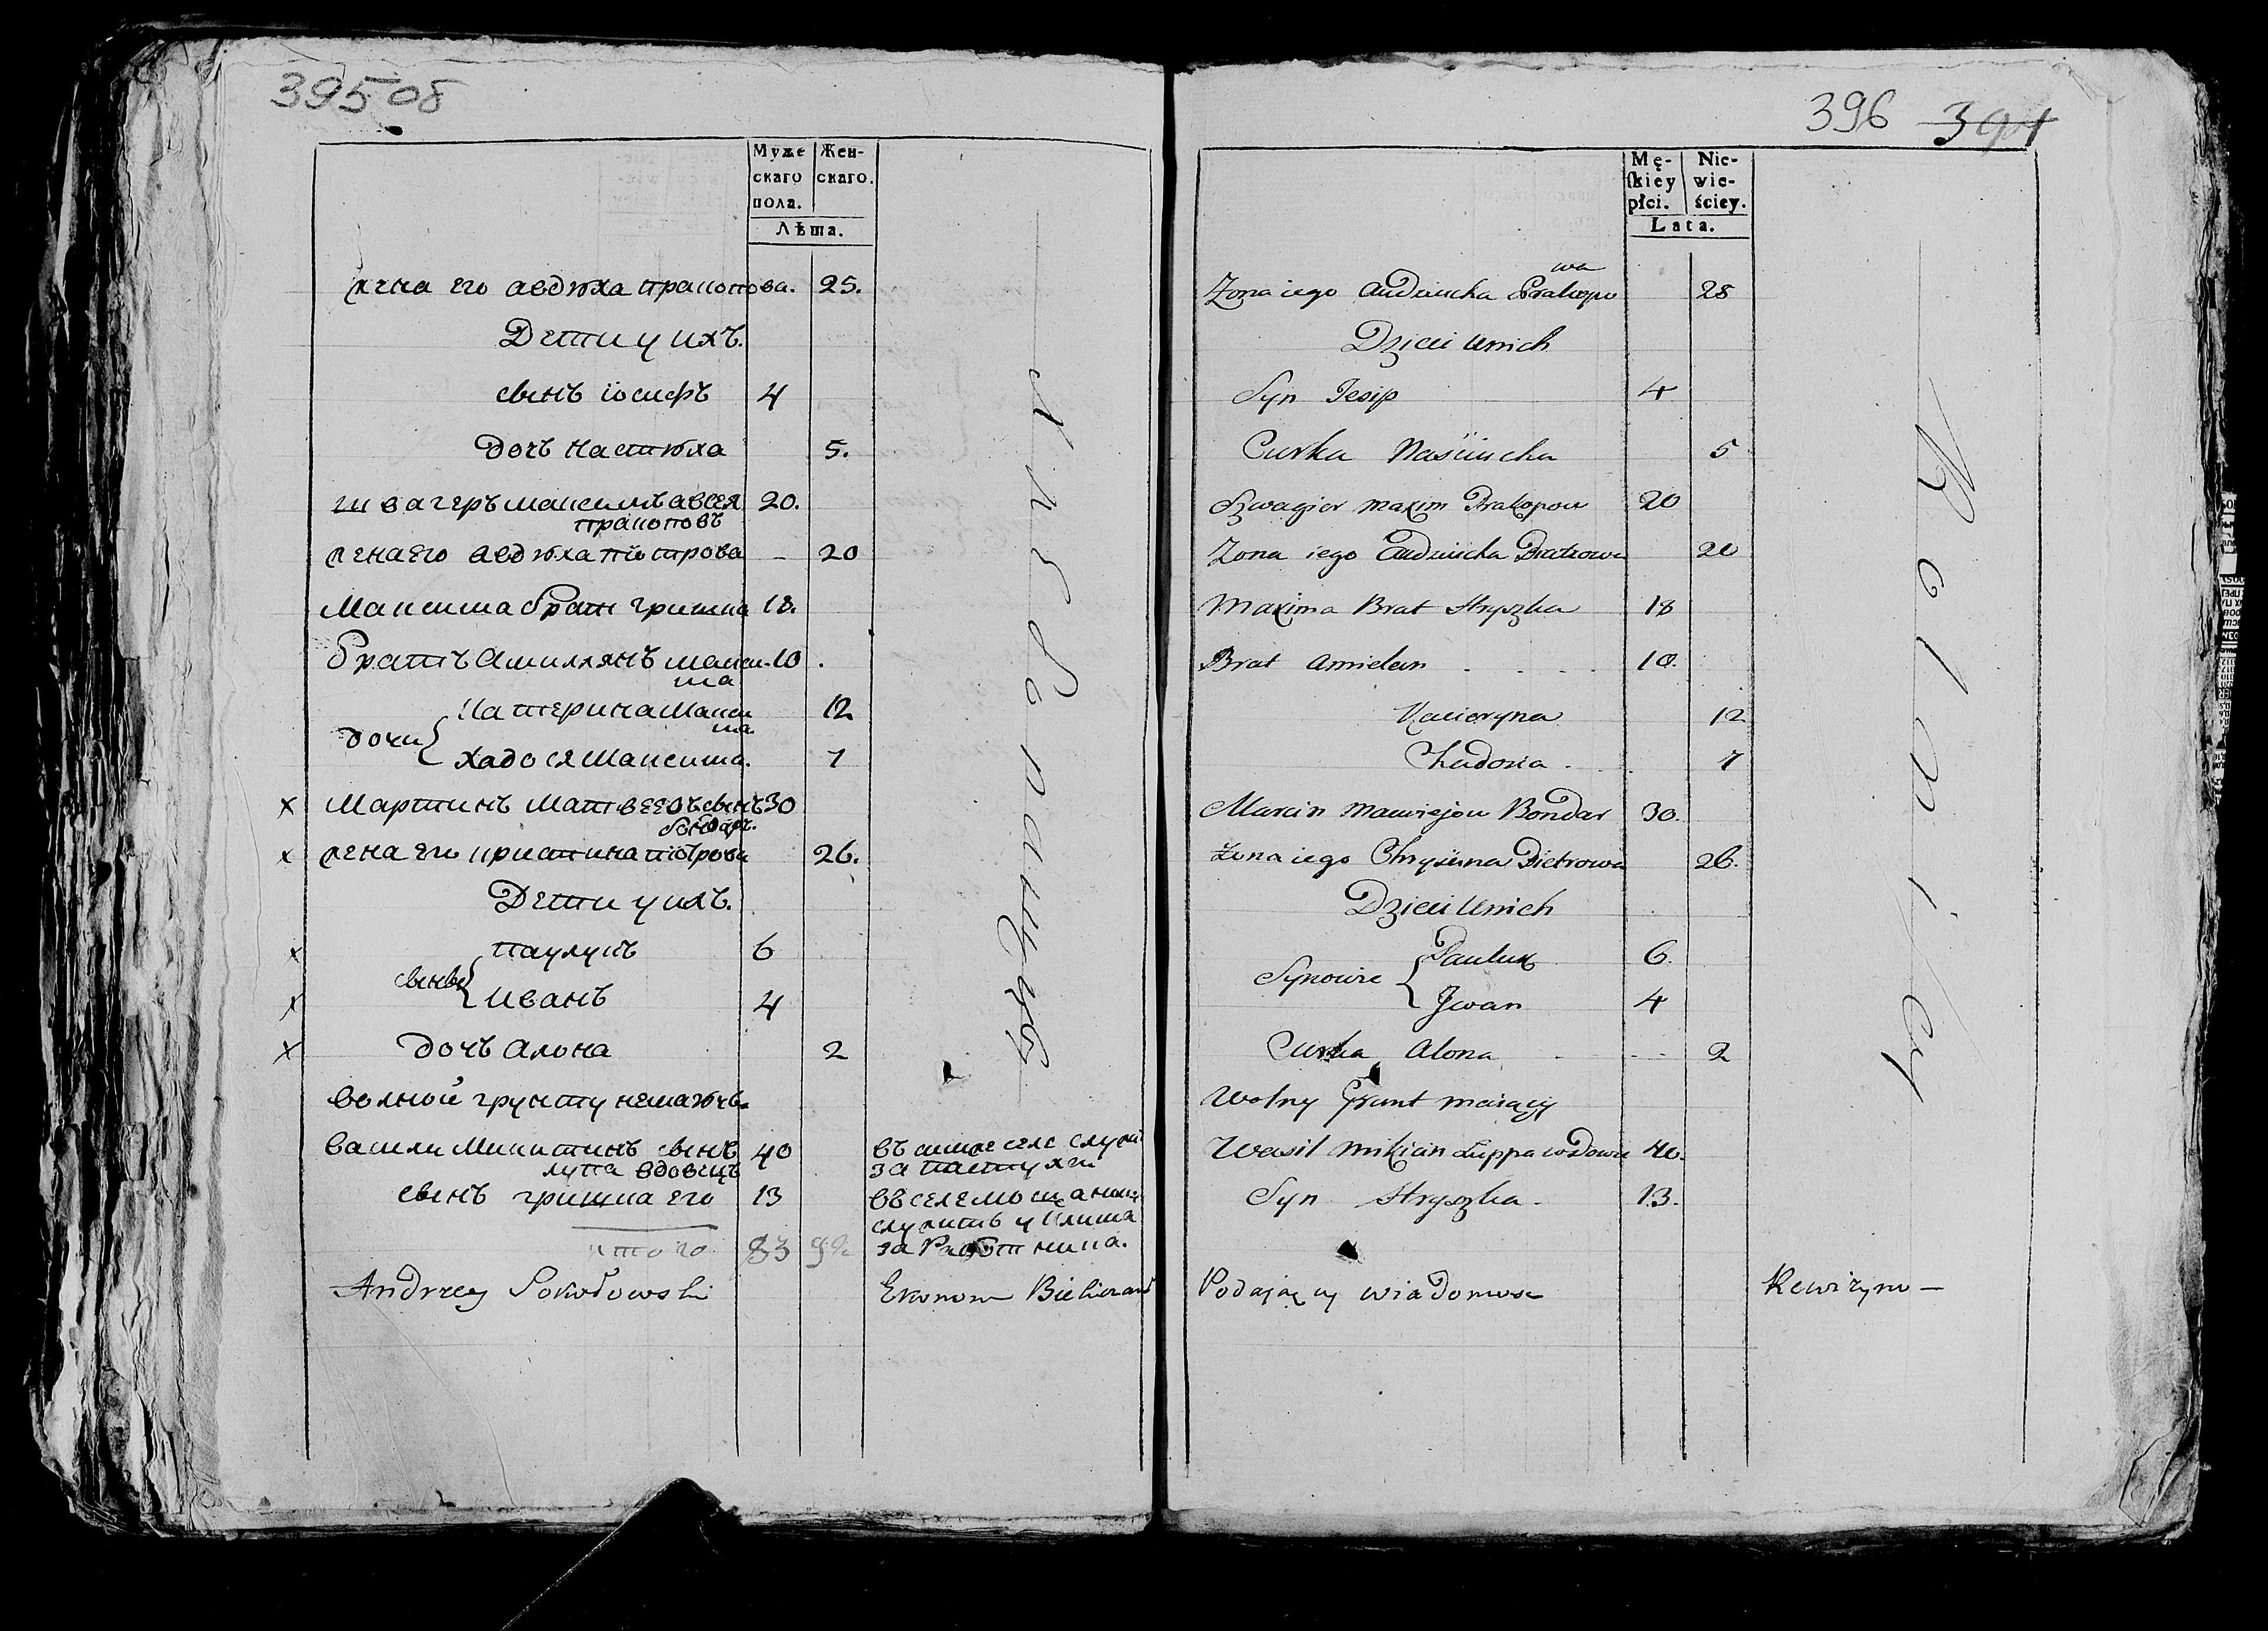 395 об
Муже
скаго
пола.
Жен-
скаго.
Лѣта.
жена его авдюха пракопова. 25.
Дети у ихъ.
сынъ іосифъ 4
дочъ настюха 5.
швагеръ максимъ авсея 20.
пракоповъ
жена его авдюха пiотрова – 20
Максима брат гришка 18.
братъ Амилянъ макси- 10.
ма
дочки { Катерина Макси 12
ма
Хадося Максима. 7
x Мартинъ Матвеевъ сынъ 30
бондаръ.
x жена его христина піотрова 26.
Дети у ихъ.
x сыны { паулукъ 6
x Иванъ 4
x дочъ Алюна 2
волной грунту немаючь.
васили Микитинъ сынъ 40
лупа вдовецъ
въ симже селе служи
за пастуха
сынъ гришка его 13
служитъ у Клима
за Работника.
итого 83
Andrzey Sokołowski Ekonom
396 391
Mę-
skiey
płci.
Nie-
wie-
ściey.
Lata.
wa
Zona iego Audziucha Prakopo 28
Dzieci Unich
Syn Jesip 4
Curka Nasciucha 5
Szwagier Maxim Prakopow 20
Zona iego Audziucha Piatrowa 20
Maxima Brat Hryszka 18
Brat Amielan 10.
Kacieryna 12
Chadosia 7
Marcin Mawiejow Bondar 30.
Zona iego Chryscina Pietrowa 26.
Dzieci Unich
Synowie { Pauluk 6.
Jwan 4
Curka Alona 2
Wolny Grunt maiący
Wasil Mikician Luppa wdowiec 40.
Syn Hryszka 13.
Podający wiadomosc Rewizyno –